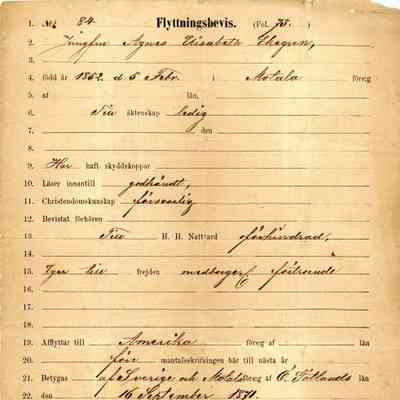 1. No 84 Flyttningsbevis. (Fol. 75.)
2. Jungfru Agnes Elisabeth Ekegren,
3.
4. född år 1852. d 5 Febr. i Motala föreg
5. af län,
6. Till äktenskap ledig
7. den
8.
9. Har haft skyddskoppor
10. Läser innantill godkändt,
11. Christendomskunskap försvarlig
12. Bevistat förhören
13. Till H. H. Nattvard oförhindrad,
14.
15. Eger till frejden medborgerl. förtroende
16.
17.
18.
19. Afflyttar till Amerika föreg af län
20. före mantalsskrifningen här till nästa år
21. Betygas af Sverige och Motala föreg af Ö. Götlands län
22. den 16 September 1871.